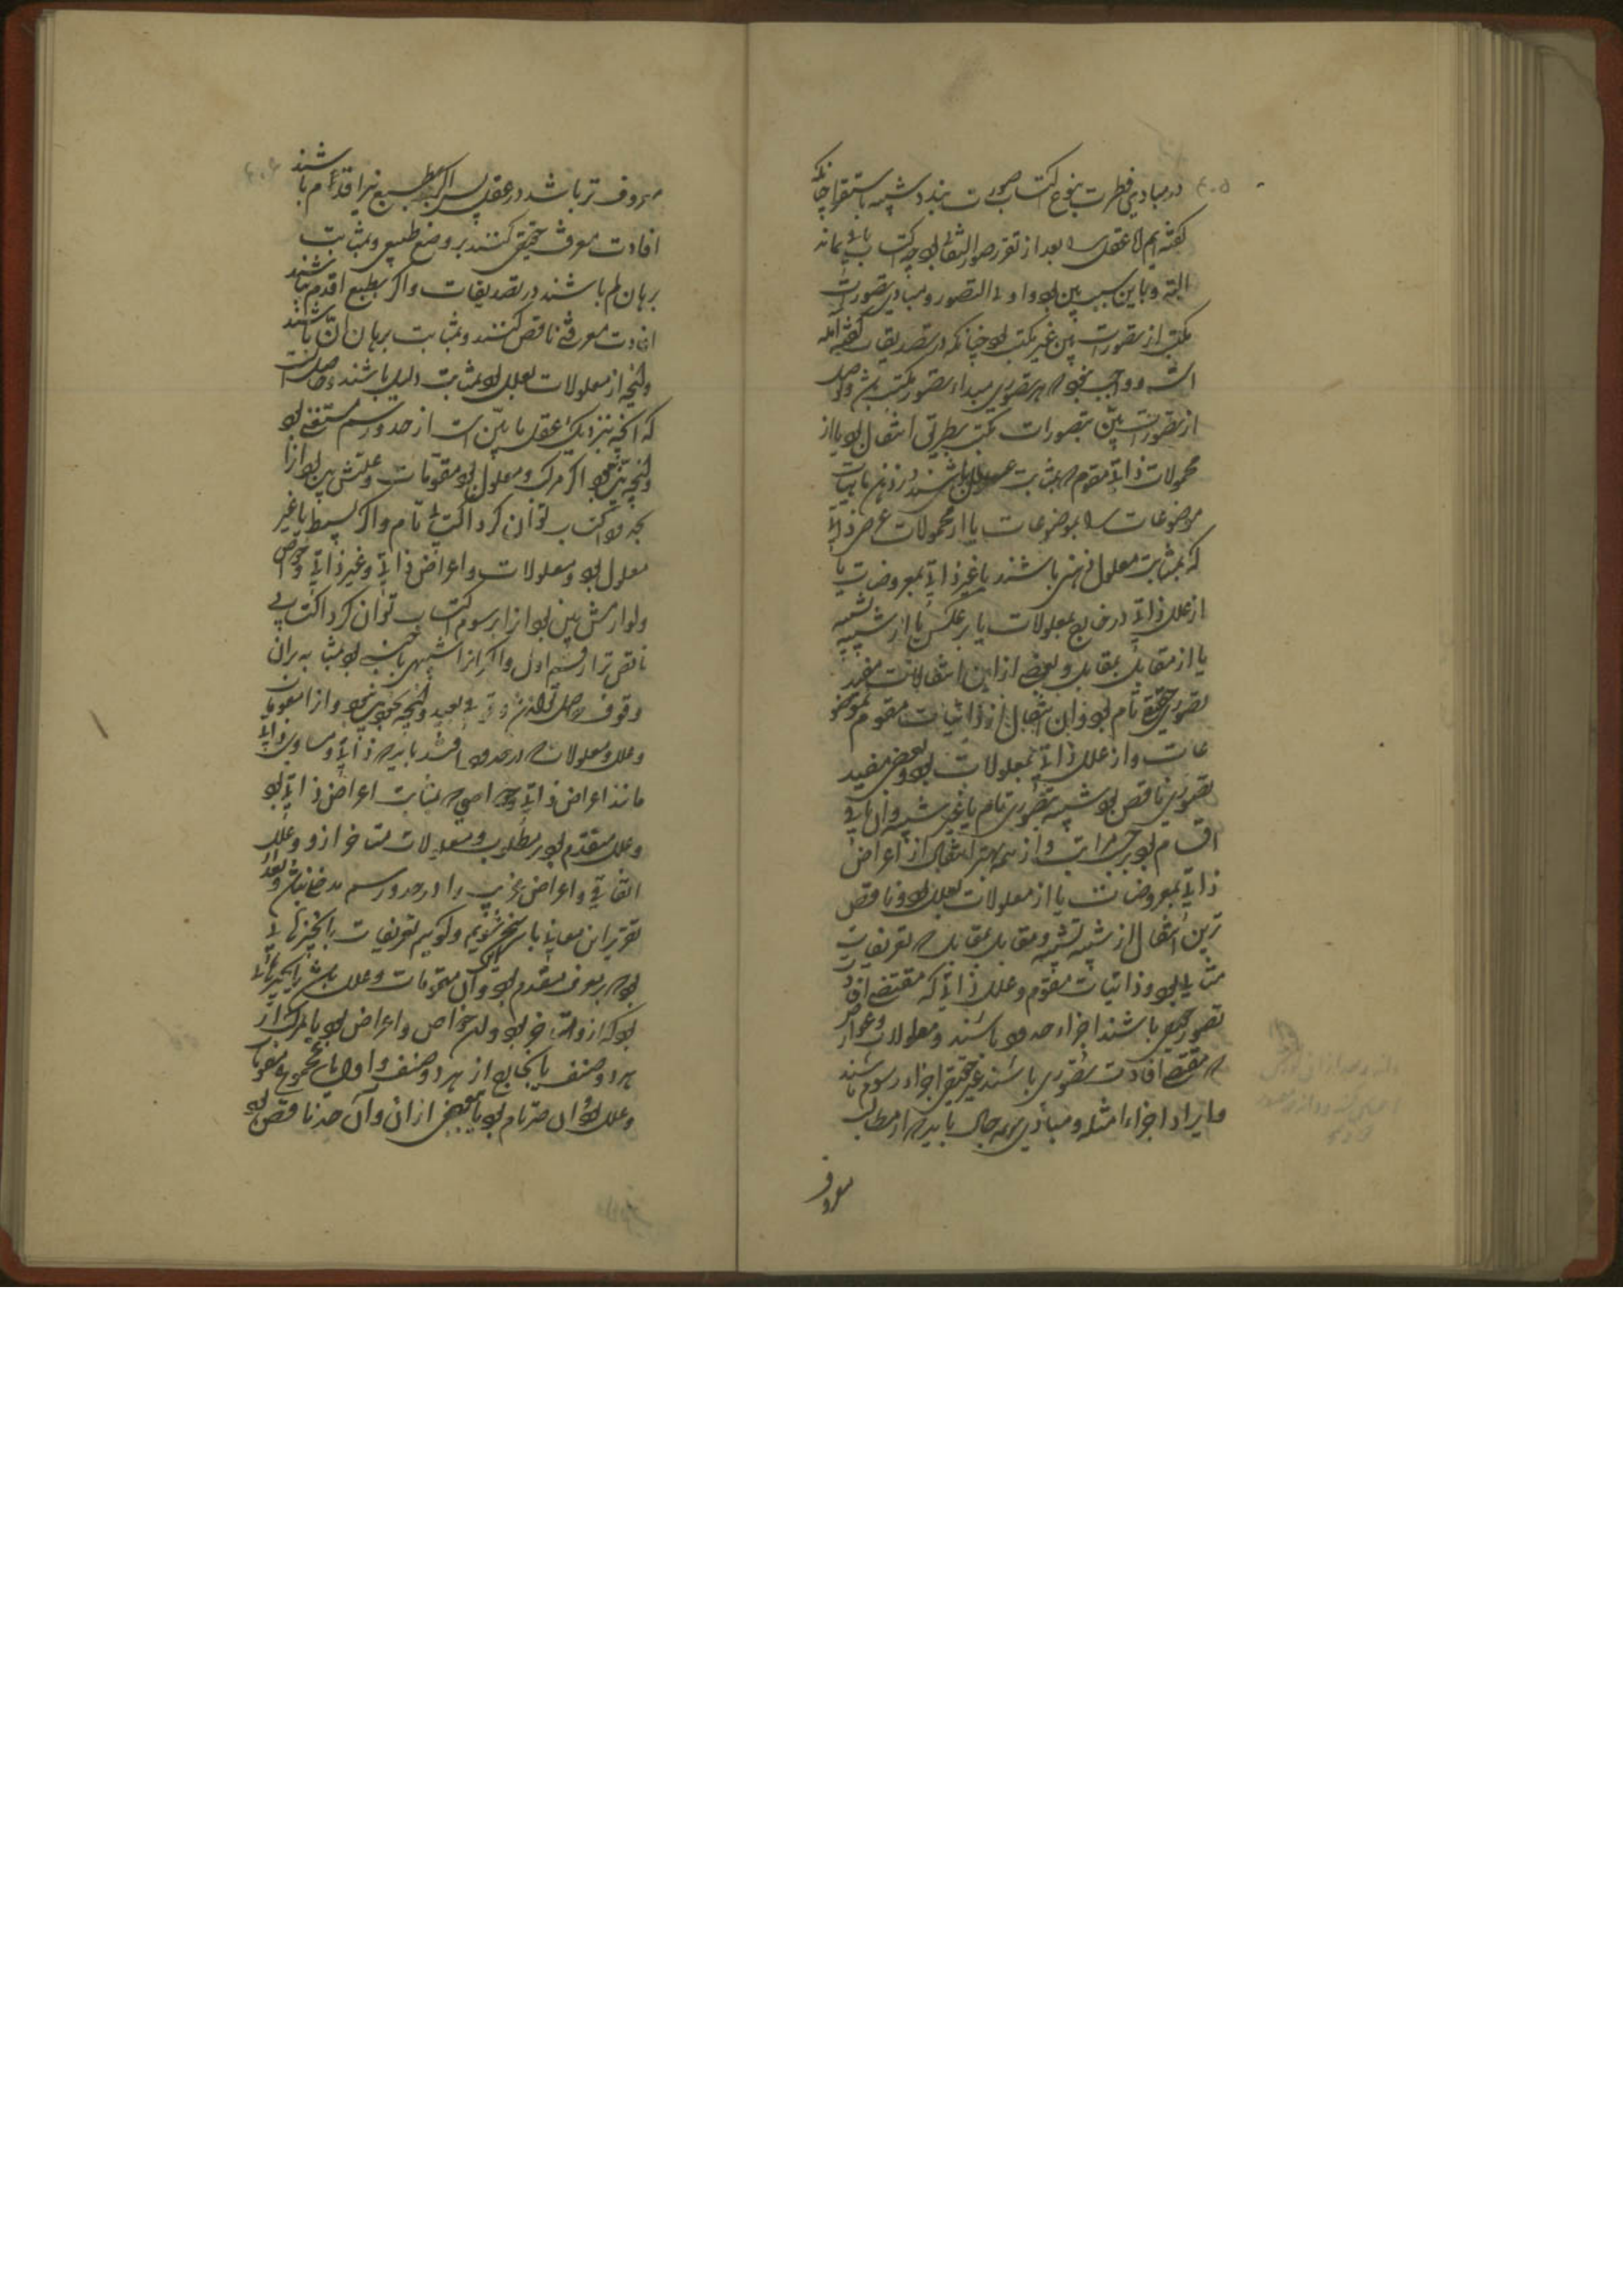 در مبادی فطرت بنوع اکتساب صورت بندد شبیه باستقرا چنانکه
گفته‌ایم اما عقل را بعد از تقرر صور التفات بوجه اکتساب باقی نماند
البته و باین سبب بین بود و اولی التصور و مبادی تصورات
مکتسب از تصورات بین غیر مکتسب بود چنانکه در تصدیقات گفته آمد
است و واجب نبود که هر تصوری مبداء تصور مکتسب باشد و وصول
از تصورات بین بتصورات مکتسب بطریق انتقال بود یا از
محمولات ذاتی مقوم که بمثابت علل باشند در ذهن ماهیات
موضوعات را بموضوعات یا از محمولات عرضی ذاتی
که بمثابت معلول ذهنی باشند یا غیر ذاتی بمعروضات یا
از علل ذاتی در خارج بمعلولات یا بر عکس یا از شبیه بشبیه
یا از مقابل بمقابل و بعضی ازین انتقالات مفید
تصوری حقیقی تام بود و آن انتقال از ذاتیات مقوم بموضو
عات و از علل ذاتی بمعلولات بود و بعضی مفید
تصوری ناقص بود شبیه بتصوری تام یا غیر شبیه و آن باقی
اقسام بود بر حسب مراتب و از همه بهتر انتقال از اعراض
ذاتی بمعروضات یا از معلولات بعلل بود و ناقص
ترین انتقال از شبیه بشبیه و مقابل بمقابل که تعریفات
مثالی بود و ذاتیات مقوم و علل ذاتی که مقتضی افادت
تصور حقیقی باشند اجزاء حدود باشند و معلولات و عوارض
که مقتضی افادت تصوری باشند غیر حقیقی اجزاء رسوم باشند
و ایراد اجزاء امثله و مبادی بهمه حال باید که از مطالب
معروف
معروف تر باشد در عقل پس اگر بطبع نیز اقدم باشند
افادت معرفت حقیقی کنند بر وضع طبیعی و بمثابت
برهان لم باشند در تصدیقات و اگر بطبع اقدم نباشند
افادت معرفتی ناقص کنند و بمثابت برهان ان باشند
و آنچه از معلولات بعلل بود بمثابت دلیل باشند و حاصل آنست
که آنچه بنزدیک عقل ما بین است از حد و رسم مستغنی بود
و آنچه بین نبود اگر مرکب و معلول بود و مقومات و علتش بین بود آنرا
بحدود اکتساب توان کرد اکتسابی تام و اگر بسیط یا غیر
معلول بود و معلولات و اعراض ذاتی و غیر ذاتی و خواص
و لوازمش بین بود آنرا برسوم اکتساب توان کرد اکتسابی
ناقص تر از قسم اول و اگر آنرا شبیهی یا نسبتی بود بمشابه بر آن
وقوف حاصل توان کرد وقوفی بعید و آنچه بین نبود و آنرا مقومات
و علل و معلولات در حدود افتند باید که ذاتی و مساوی ذاتی
مانند اعراض ذاتی و خواصی که بمثابت اعراض ذاتی بود
و علل متقدم بود بر مطلوب و معلولات متاخر از و و علل
اتفاقی و اعراض غریب را در حدود و رسم مدخلی نباشد و بعد از
تقریر این معانی با سر سخن شویم و گوییم تعریفات یا بچیزهائی
بود که بر معرف متقدم بود و آن مقومات و علل باشد یا بچیزهائی
بود که از و متاخر بود و آن خواص و اعراض بود یا بمرکب از
هر دو صنف یا بخارج از هر دو صنف و اول یا بمجموع مقومات
و علل بود و آن حد تام بود یا ببعضی از آن و آن حد ناقص بود